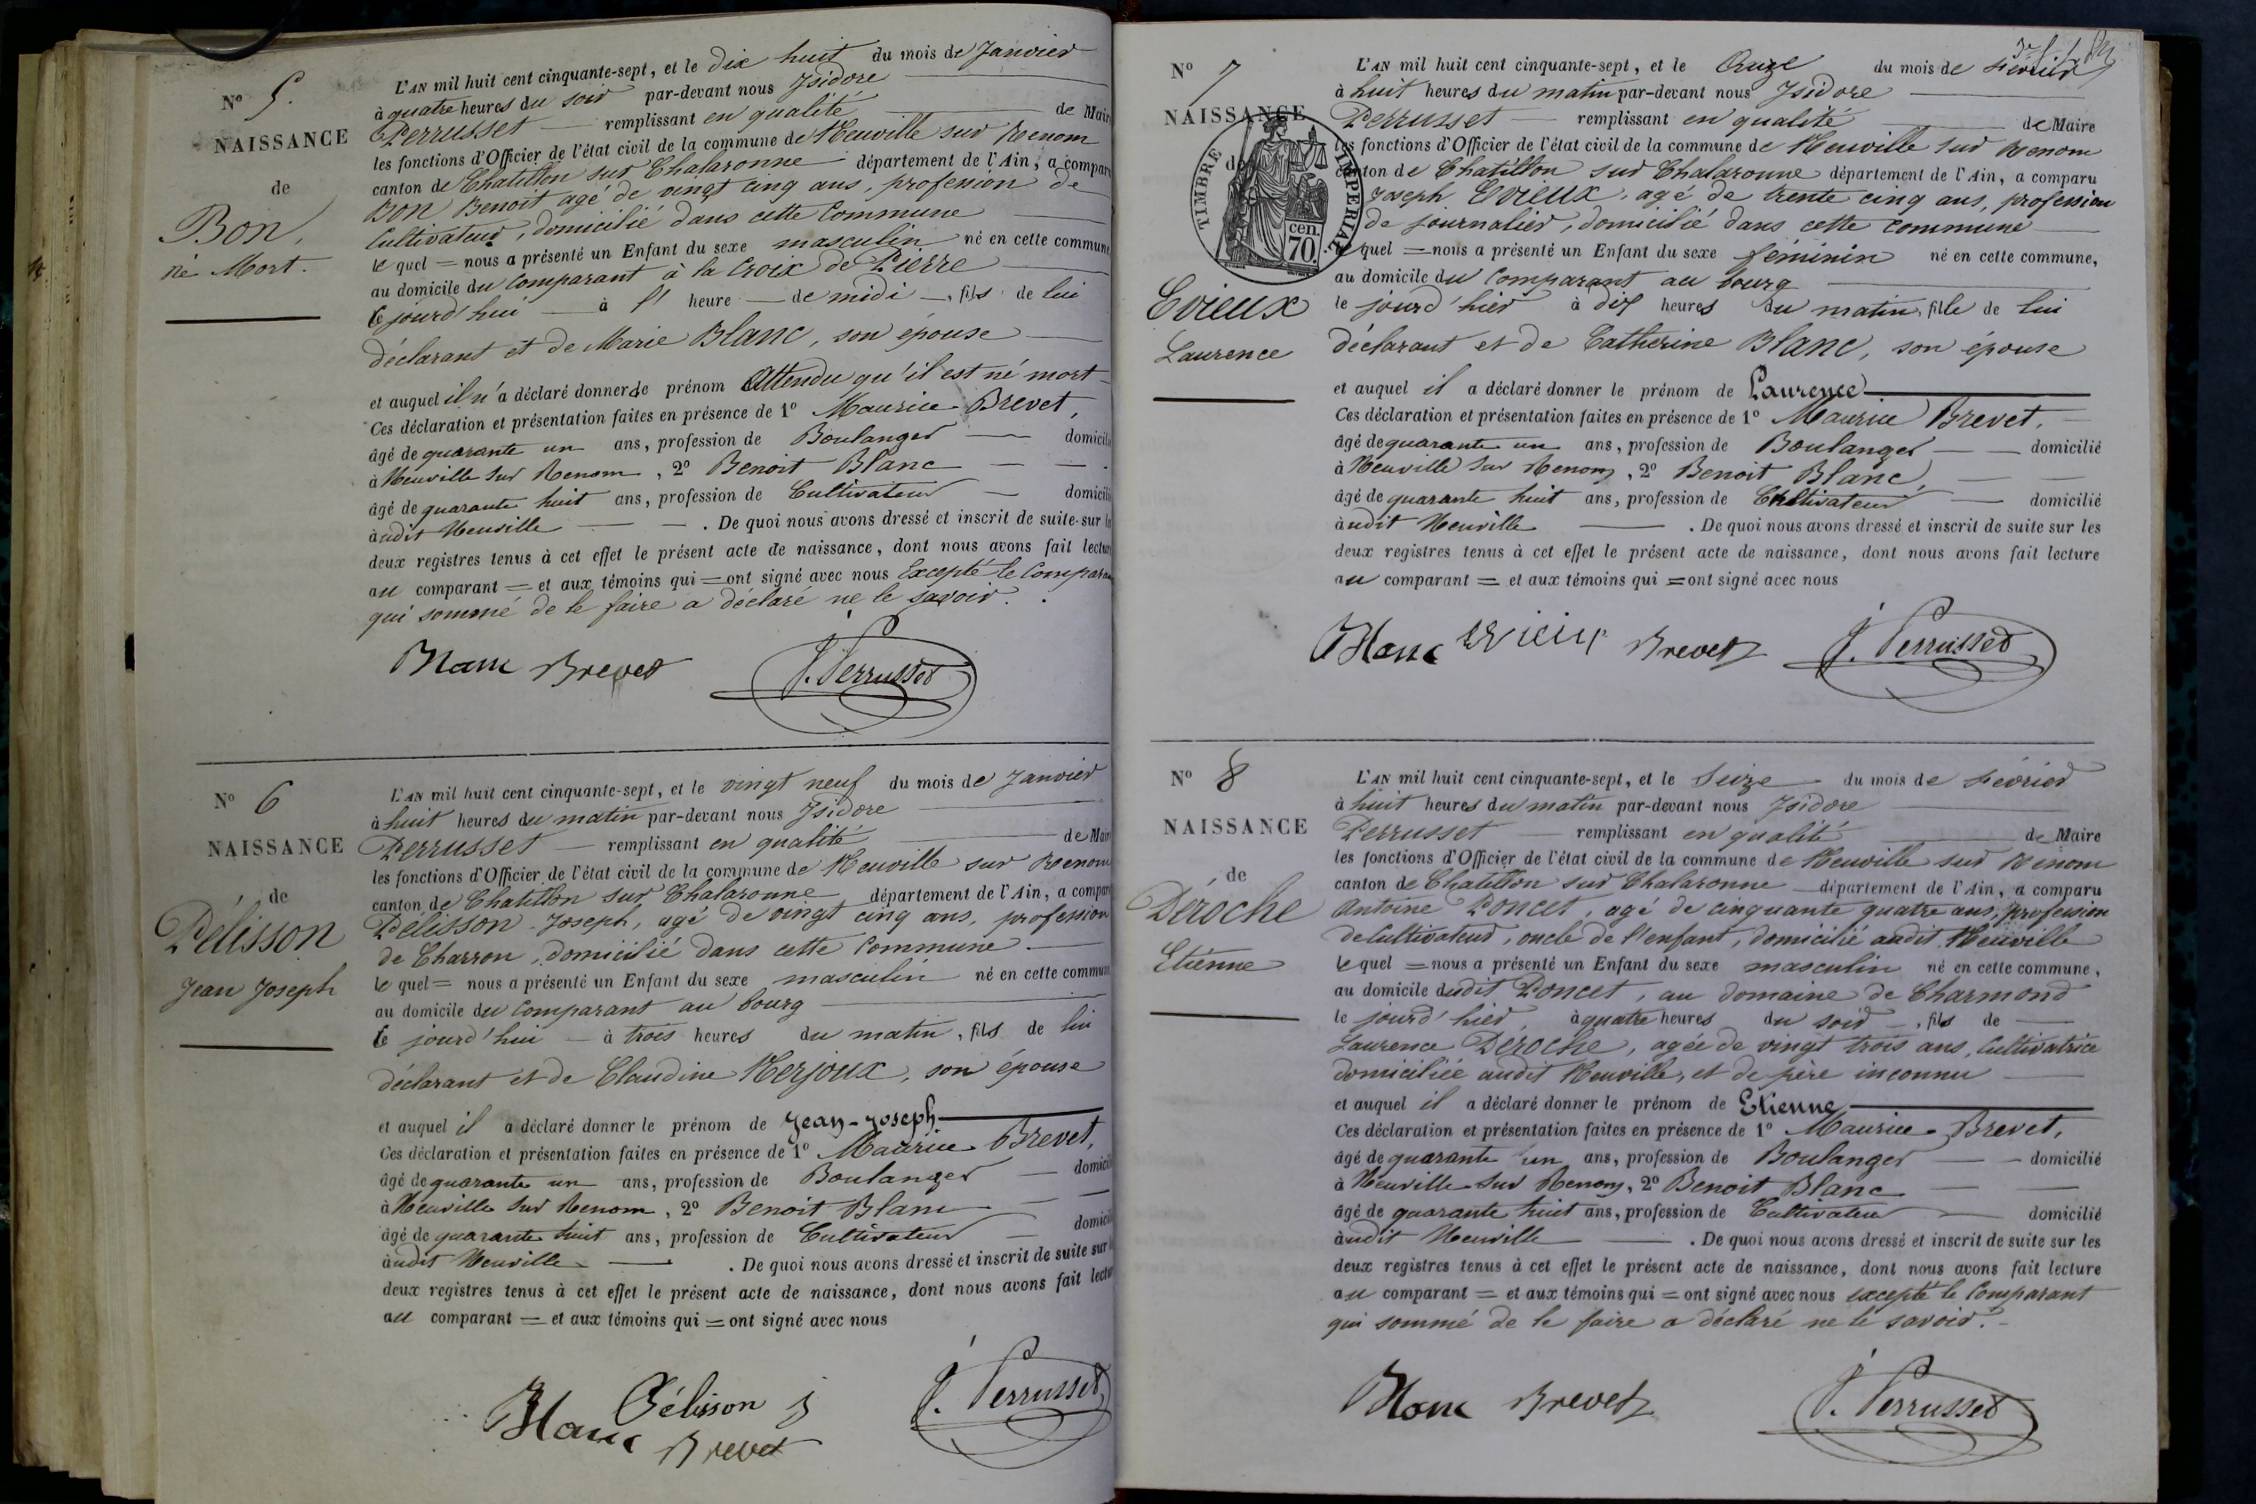 N° 5.
NAISSANCE
de
Bon,
né Mort.
L'AN mil huit cent cinquante-sept, et le dix huit du mois de Janvier
à quatre heures du soir par-devant nous Isidore
Perrusset remplissant en qualité de Maire
les fonctions d'Officier de l'état civil de la commune de Neuville sur Renom
canton de Chatillon sur Chalaronne département de l'Ain, a comparu
Bon Benoit agé de vingt cinq ans, profession de
Cultivateur, domicilié dans cette Commune
le quel = nous a présenté un Enfant du sexe masculin né en cette commune
au domicile du Comparant à la Croix de Pierre
le jourd'hui à heure de midi, fils de lui
déclarant et de Marie Blanc, son épouse
et auquel il n'a déclaré donner de prénom Attendu qu'il est né mort
Ces déclaration et présentation faites en présence de 1° Maurice Brevet,
âgé de quarante un ans, profession de Boulanger domicilié
à Neuville sur Renom, 2° Benoit Blanc
âgé de quarante huit ans, profession de Cultivateur domicilié
audit Neuville . De quoi nous avons dressé et inscrit de suite sur
deux registres tenus à cet effet le présent acte de naissance, dont nous avons fait lecture
au comparant = et aux témoins qui = ont signé avec nous Excepté le Comparant
qui sommé de le faire a déclaré ne le savoir.
Blanc Brevet J. Perrusset
N° 6
NAISSANCE
de
Pélisson
Jean Joseph
L'AN mil huit cent cinquante-sept, et le vingt neuf du mois de Janvier
à huit heures du matin par-devant nous Isidore
Perrusset remplissant en qualité de Maire
les fonctions d'Officier de l'état civil de la commune de Neuville sur Renom
canton de Chatillon sur Chalaronne département de l'Ain, a comparu
Pélisson Joseph, agé de vingt cinq ans, profession
de Charron, domicilié dans cette Commune
le quel = nous a présenté un Enfant du sexe masculin né en cette commune
au domicile du Comparant au bourg
le jourd'hui à trois heures du matin, fils de lui
déclarant et de Claudine Merjoux, son épouse
et auquel il a déclaré donner le prénom de Jean-Joseph
Ces déclaration et présentation faites en présence de 1° Maurice Brevet,
âgé de quarante un ans, profession de Boulanger domicilié
à Neuville sur Renom, 2° Benoit Blanc
âgé de quarante huit ans, profession de Cultivateur domicilié
audit Neuville . De quoi nous avons dressé et inscrit de suite sur
deux registres tenus à cet effet le présent acte de naissance, dont nous avons fait lecture
au comparant = et aux témoins qui = ont signé avec nous
Pélisson j J. Perrusset
Blanc Brevet
N° 7
NAISSANCE
de
TIMBRE IMPERIAL
70 cen.
Evieux
Laurence
L'AN mil huit cent cinquante-sept, et le Onze du mois de Février
à huit heures du matin par-devant nous Isidore
Perrusset remplissant en qualité de Maire
les fonctions d'Officier de l'état civil de la commune de Neuville sur Renom
canton de Chatillon sur Chalaronne département de l'Ain, a comparu
Joseph Evieux, agé de trente cinq ans, profession
de journalier, domicilié dans cette commune
le quel = nous a présenté un Enfant du sexe féminin né en cette commune,
au domicile du Comparant au bourg
le jourd'hier à dix heures du matin, fille de lui
déclarant et de Catherine Blanc, son épouse
et auquel il a déclaré donner le prénom de Laurence
Ces déclaration et présentation faites en présence de 1° Maurice Brevet,
âgé de quarante un ans, profession de Boulanger domicilié
à Neuville sur Renom, 2° Benoit Blanc,
âgé de quarante huit ans, profession de Cultivateur domicilié
audit Neuville . De quoi nous avons dressé et inscrit de suite sur les
deux registres tenus à cet effet le présent acte de naissance, dont nous avons fait lecture
au comparant = et aux témoins qui = ont signé avec nous
Blanc Evieux Brevet J. Perrusset
N° 8
NAISSANCE
de
Déroche
Etienne
L'AN mil huit cent cinquante-sept, et le Seize du mois de Février
à huit heures du matin par-devant nous Isidore
Perrusset remplissant en qualité de Maire
les fonctions d'Officier de l'état civil de la commune de Neuville sur Renom
canton de Chatillon sur Chalaronne département de l'Ain, a comparu
Antoine Poncet, agé de cinquante quatre ans, profession
de Cultivateur, oncle de l'enfant, domicilié audit Neuville
le quel = nous a présenté un Enfant du sexe masculin né en cette commune,
au domicile dudit Poncet, au domaine de Charmond
le jourd'hier à quatre heures du soir, fils de
Laurence Déroche, agée de vingt trois ans, Cultivatrice
domiciliée audit Neuville, et de père inconnu
et auquel il a déclaré donner le prénom de Etienne
Ces déclaration et présentation faites en présence de 1° Maurice Brevet,
âgé de quarante un ans, profession de Boulanger domicilié
à Neuville sur Renom, 2° Benoit Blanc
âgé de quarante huit ans, profession de Cultivateur domicilié
audit Neuville . De quoi nous avons dressé et inscrit de suite sur les
deux registres tenus à cet effet le présent acte de naissance, dont nous avons fait lecture
au comparant = et aux témoins qui = ont signé avec nous excepté le Comparant
qui sommé de le faire a déclaré ne le savoir.
Blanc Brevet J. Perrusset